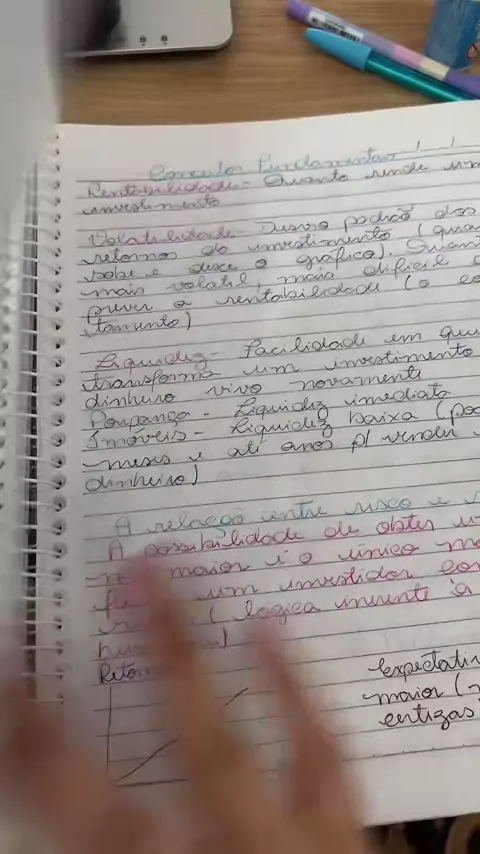 Conceitos Fundamentais
Rentabilidade - Quanto rende um
investimento
Volatilidade - Desvio padrão dos
retornos do investimento (quan
sobe e desce o gráfico). Quan
mais volatil, mais dificil
prever a rentabilidade (o co
tamento)
Liquidez - facilidade em que
transforma um investimento
dinheiro vivo novamente
Poupança - Liquidez imediata
Imóveis - Liquidez baixa (pod
meses e até anos p/ vender
dinheiro)
A relação entre risco e
A possibilidade de obter
maior é o único mo
um investidor cor
(logica inerente à
Retor
expectativ
maior
certezas